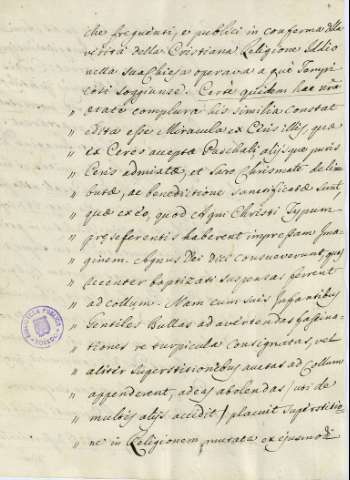 che frequenti, e publici in conferma della
verità della Cristiana Religione Iddio
nella sua Chiesa operava a que' Tempi
così soggiunse. Certe quidem hac nrã
„ ætate complura his similia constat
„ edita esse Miracula ex Ceris illis, quæ
„ ex Cereo accepta Paschali, alijsque puris
„ Ceris admixtæ, et Sacro Chrismate delini
„ butæ, ac benedictione sanctificatæ sunt,
„ quæ ex eo, quod Agni Christi Typum
„ præseferentis haberent impressam Ima
„ ginem. Agnus Dei dici consueverunt, quos
„ recenter baptizati suspensas ferrent
„ ad collum. Nam cum suis Infantibus
„ Gentiles Bullas ad avertendas fascina
„ tiones re turpicula consignatas, vel
„ aliter superstitionibus auctas ad collum
„ appenderent, ad eas abolendas / uti de
„ multis alijs accidit / placuit superstitio
„ ne in Religionem mutata ex ejusmodi
BIBLIOTECA PUBLICA
TOLEDO